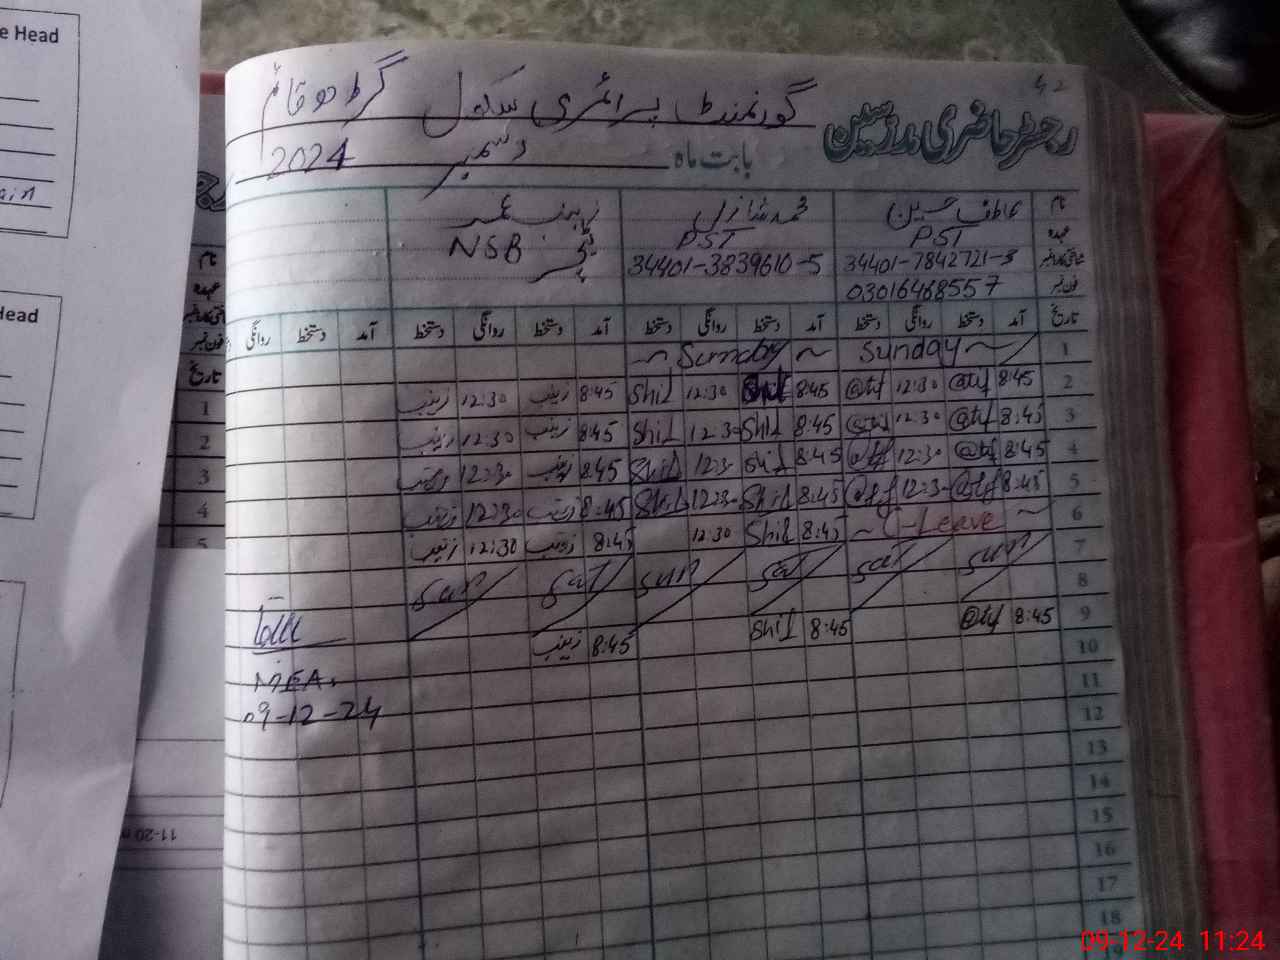 42
رجسٹر حاضری مدرسین گورنمنٹ پرائمری سکول گڑھ قائم
بابت ماہ دسمبر 2024
نام عاطف حسین محمد شازل زینب عمر
عہدہ PST PST NSB
34401-7842721-3 34401-3839610-5
فون نمبر 03016468557
تاریخ آمد دستخط روانگی دستخط آمد دستخط روانگی دستخط آمد دستخط روانگی دستخط آمد دستخط روانگی
1 Sunday Sunday
2 8:45 @tif 12:30 @tif 8:45 Shil 12:30 Shil 8:45 زینب 12:30 زینب
3 8:45 @tif 12:30 @tif 8:45 Shil 12:30 Shil 8:45 زینب 12:30 زینب
4 8:45 @tif 12:30 @tif 8:45 Shil 12:30 Shil 8:45 زینب 12:30 زینب
5 8:45 @tif 12:30 @tif 8:45 Shil 12:30 Shil 8:45 زینب 12:30 زینب
6 C-Leave 8:45 Shil 12:30 8:45 زینب 12:30 زینب
7 Sun Sat Sat Sun Sat Sun
8
9 8:45 @tif 8:45 Shil 8:45 زینب
10
11 MEA.
12 09-12-24
13
14
15
16
17
18
19
e Head
Head
نام
عہدہ
فون نمبر
تاریخ
1
2
3
4
5
11-20
09-12-24 11:24